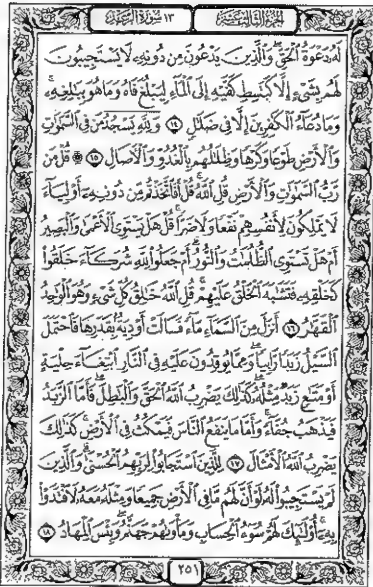 الجزء الثالث عشر
١٣ سورة الرعد
لَهُۥ دَعْوَةُ ٱلْحَقِّ ۖ وَٱلَّذِينَ يَدْعُونَ مِن دُونِهِۦ لَا يَسْتَجِيبُونَ
لَهُم بِشَىْءٍ إِلَّا كَبَٰسِطِ كَفَّيْهِ إِلَى ٱلْمَآءِ لِيَبْلُغَ فَاهُ وَمَا هُوَ بِبَٰلِغِهِۦ ۚ
وَمَا دُعَآءُ ٱلْكَٰفِرِينَ إِلَّا فِى ضَلَٰلٍ ١٤ وَلِلَّهِ يَسْجُدُ مَن فِى ٱلسَّمَٰوَٰتِ
وَٱلْأَرْضِ طَوْعًا وَكَرْهًا وَظِلَٰلُهُم بِٱلْغُدُوِّ وَٱلْءَاصَالِ ۩ ١٥ قُلْ مَن
رَّبُّ ٱلسَّمَٰوَٰتِ وَٱلْأَرْضِ قُلِ ٱللَّهُ ۚ قُلْ أَفَٱتَّخَذْتُم مِّن دُونِهِۦٓ أَوْلِيَآءَ
لَا يَمْلِكُونَ لِأَنفُسِهِمْ نَفْعًا وَلَا ضَرًّا ۚ قُلْ هَلْ يَسْتَوِى ٱلْأَعْمَىٰ وَٱلْبَصِيرُ
أَمْ هَلْ تَسْتَوِى ٱلظُّلُمَٰتُ وَٱلنُّورُ ۗ أَمْ جَعَلُوا۟ لِلَّهِ شُرَكَآءَ خَلَقُوا۟
كَخَلْقِهِۦ فَتَشَٰبَهَ ٱلْخَلْقُ عَلَيْهِمْ ۚ قُلِ ٱللَّهُ خَٰلِقُ كُلِّ شَىْءٍ وَهُوَ ٱلْوَٰحِدُ
ٱلْقَهَّٰرُ ١٦ أَنزَلَ مِنَ ٱلسَّمَآءِ مَآءً فَسَالَتْ أَوْدِيَةٌۢ بِقَدَرِهَا فَٱحْتَمَلَ
ٱلسَّيْلُ زَبَدًا رَّابِيًا ۚ وَمِمَّا يُوقِدُونَ عَلَيْهِ فِى ٱلنَّارِ ٱبْتِغَآءَ حِلْيَةٍ
أَوْ مَتَٰعٍ زَبَدٌ مِّثْلُهُۥ ۚ كَذَٰلِكَ يَضْرِبُ ٱللَّهُ ٱلْحَقَّ وَٱلْبَٰطِلَ ۚ فَأَمَّا ٱلزَّبَدُ
فَيَذْهَبُ جُفَآءً ۖ وَأَمَّا مَا يَنفَعُ ٱلنَّاسَ فَيَمْكُثُ فِى ٱلْأَرْضِ ۚ كَذَٰلِكَ
يَضْرِبُ ٱللَّهُ ٱلْأَمْثَالَ ١٧ لِلَّذِينَ ٱسْتَجَابُوا۟ لِرَبِّهِمُ ٱلْحُسْنَىٰ ۚ وَٱلَّذِينَ
لَمْ يَسْتَجِيبُوا۟ لَهُۥ لَوْ أَنَّ لَهُم مَّا فِى ٱلْأَرْضِ جَمِيعًا وَمِثْلَهُۥ مَعَهُۥ لَٱفْتَدَوْا۟
بِهِۦٓ ۚ أُو۟لَٰٓئِكَ لَهُمْ سُوٓءُ ٱلْحِسَابِ وَمَأْوَىٰهُمْ جَهَنَّمُ ۖ وَبِئْسَ ٱلْمِهَادُ ١٨
٢٥١